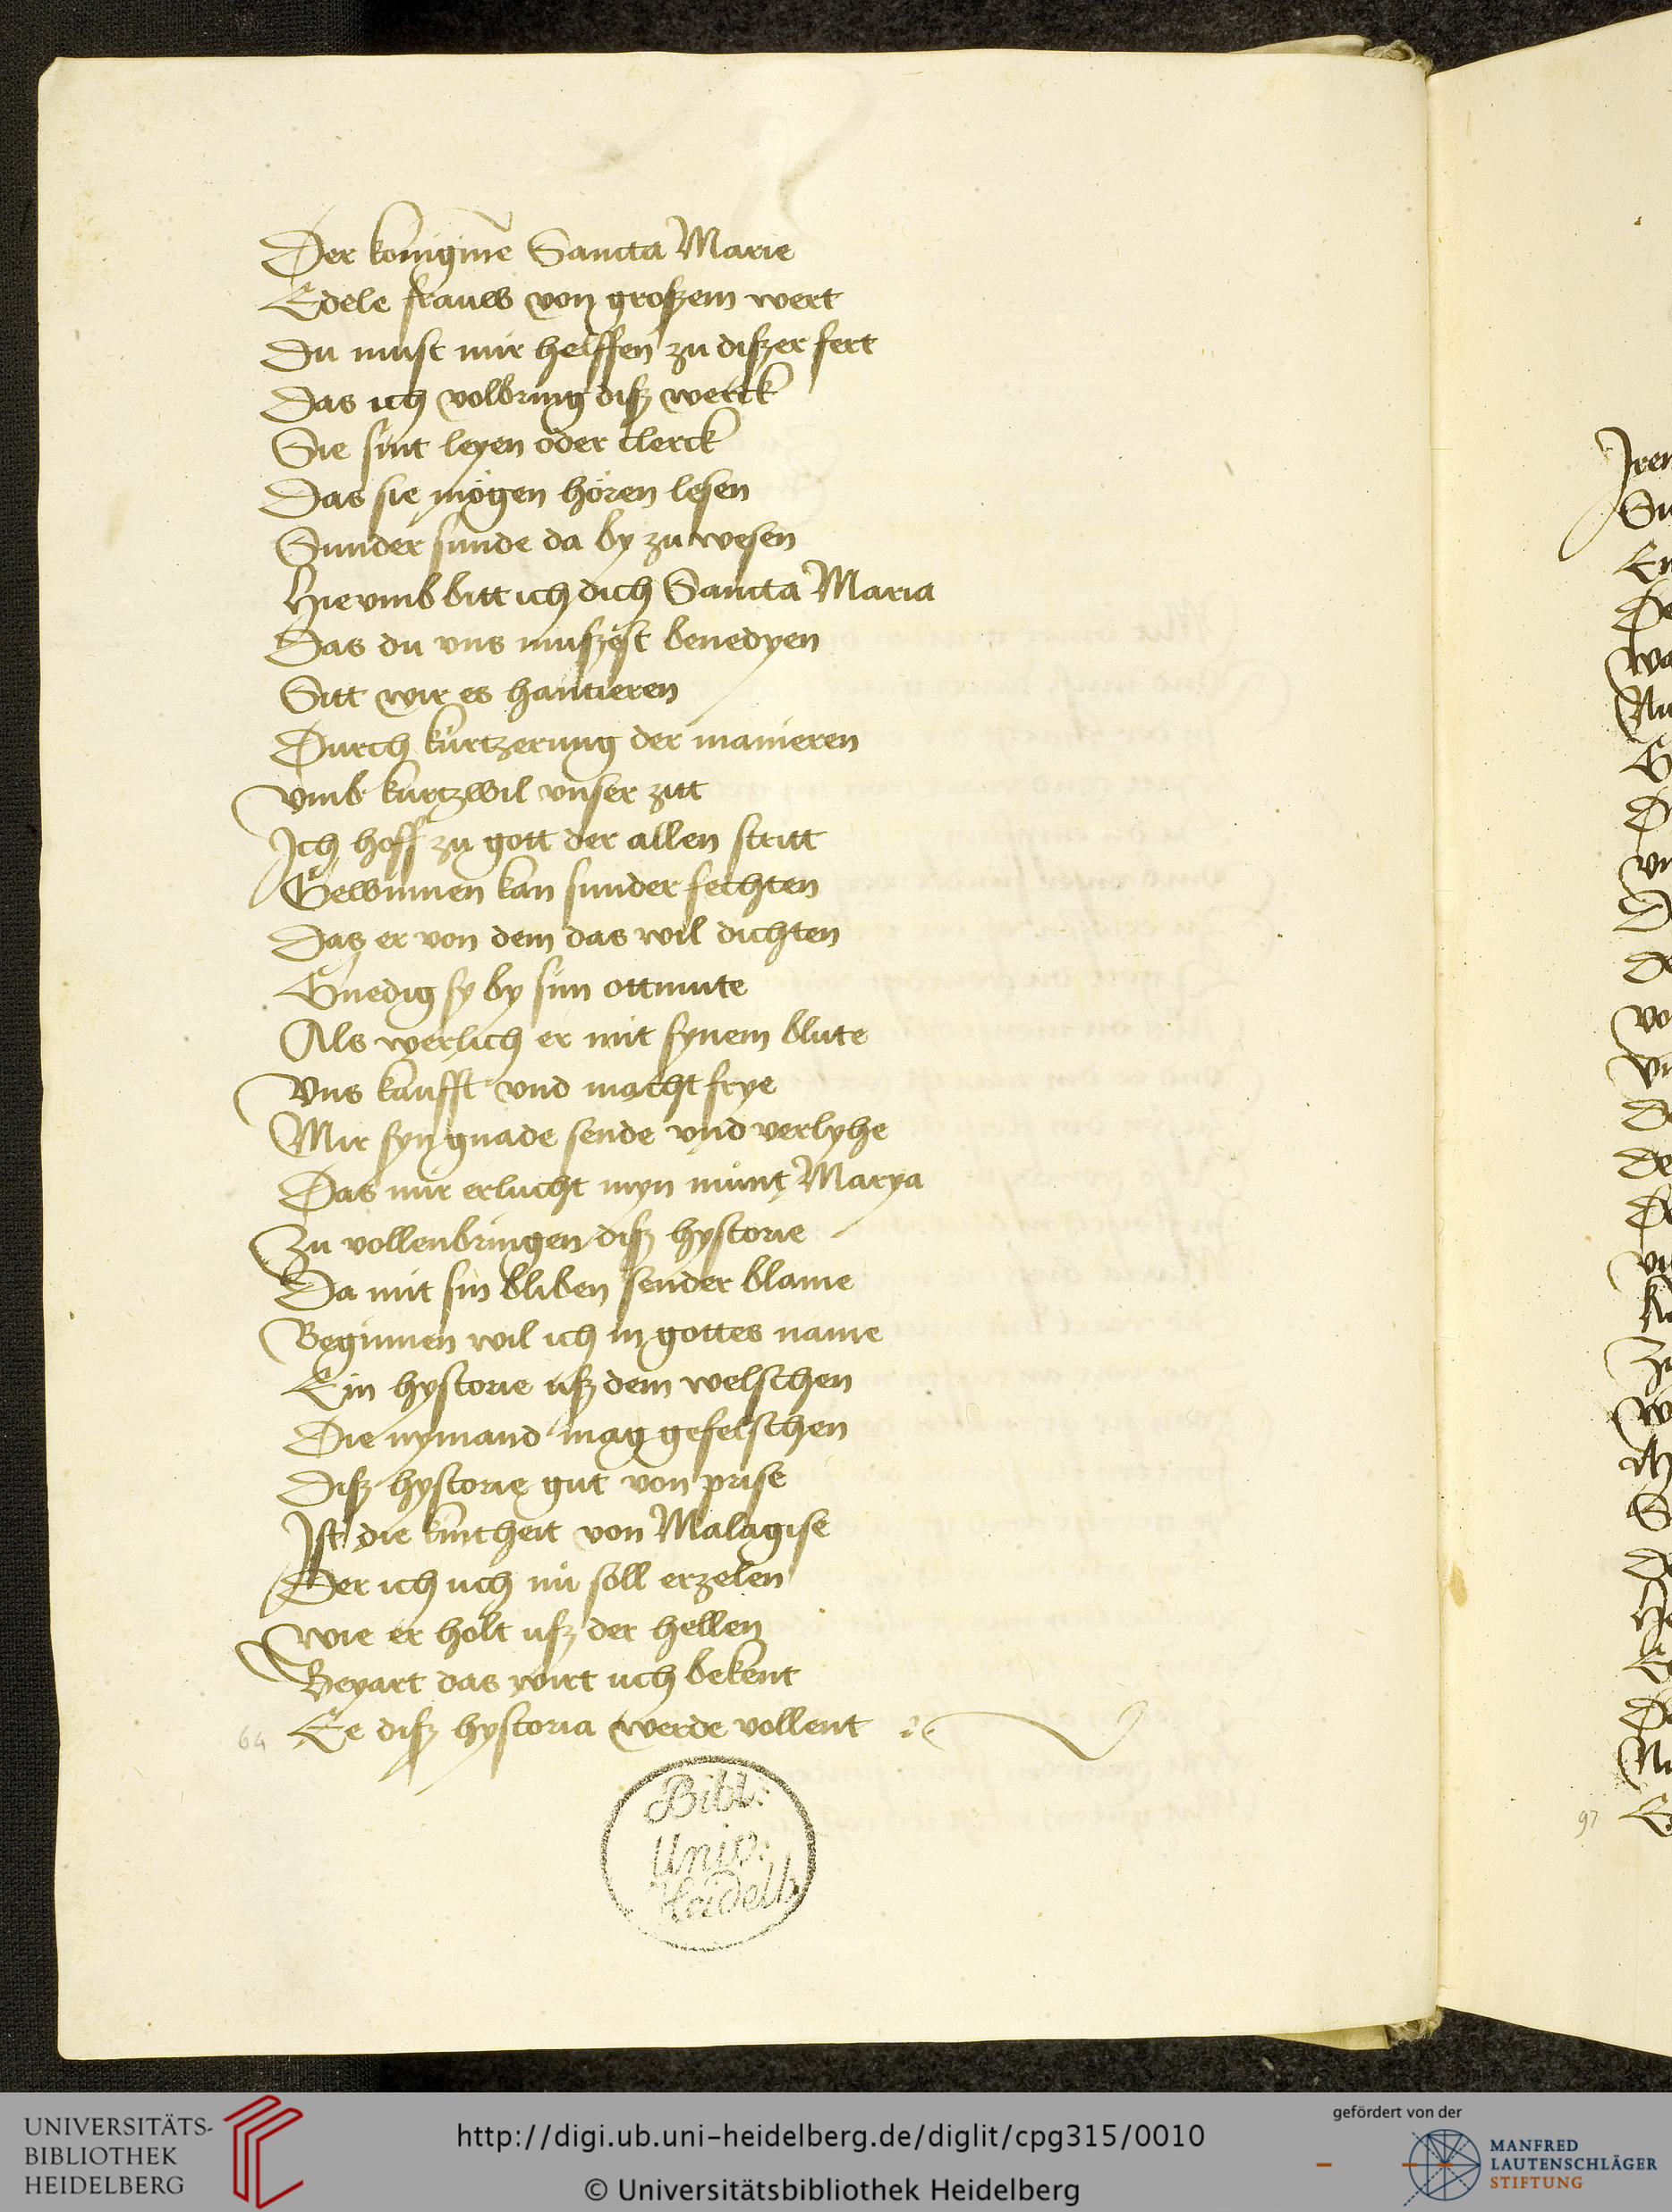 Der konigine Sancta Marie
Edele frauw von groszem wert
Du must mir helffen zu diszer fert
Das ich volbring disz werck
Sie sint leyen oder clerck
Das sie mögen hören lesen
Sunder sunde da by zu wesen
Hie vmb bitt ich dich Sancta Maria
Das du vns muszest benedyen
Sitt wir es hantieren
Durch kürtzerung der manieren
vmb kurtzwil vnser zitt
Ich hoff zu gott der allen stritt
Gewinnen kan sunder fechten
Das er von dem das wil dichten
Gnedig sy by sin ottmute
Als werlich er mit synem blute
Vns kaufft vnd macht frye
Mir syn gnade sende vnd verlyhe
Das mir erlucht myn munt Marya
Zu vollenbringen disz hystorie
Da mit sin bliben sender blame
Beginnen wil ich in gottes name
Ein hystorie usz dem welschen
Die nymand mag gefelschen
Disz hystorie gut von prise
Ist die kintheit von Malagise
Der ich uch nu soll erzelen
Wie er holt usz der hellen
Beyart das wirt uch bekent
64 Ee disz hystoria werde vollent
Bibl:
Univ:
Heidelb.
97
UNIVERSITÄTS-
BIBLIOTHEK
HEIDELBERG
http://digi.ub.uni-heidelberg.de/diglit/cpg315/0010
© Universitätsbibliothek Heidelberg
gefördert von der
MANFRED
LAUTENSCHLÄGER
STIFTUNG